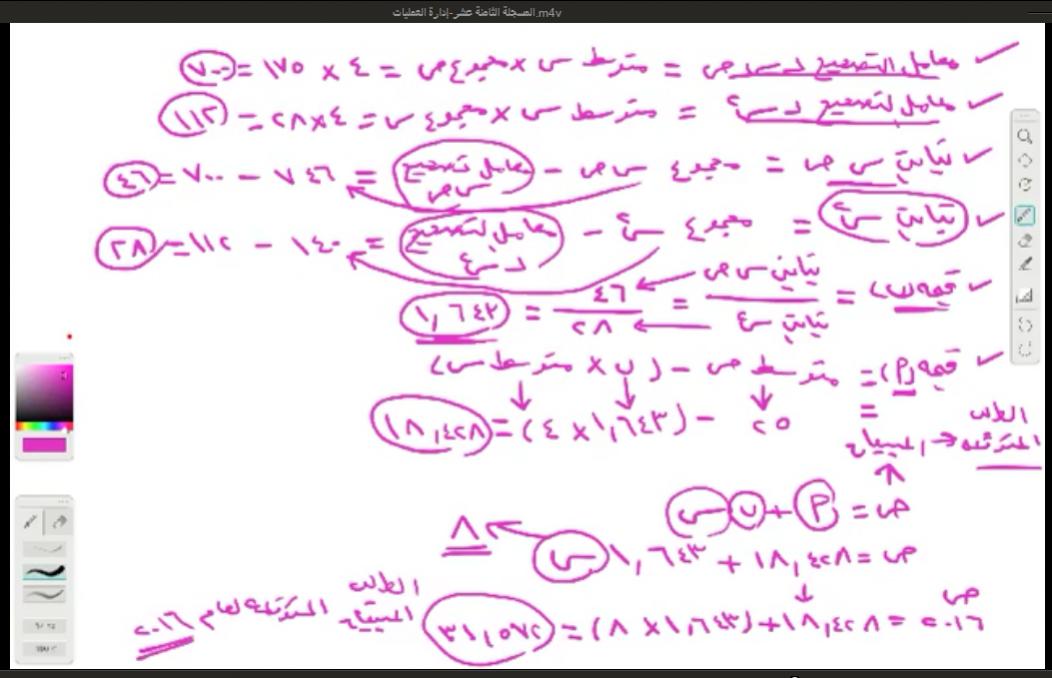 المسجلة الثامنة عشر-إدارة العمليات.m4v
معامل التصحيح لـ س ص = متوسط س × مجموع ص = ٤ × ١٧٥ = ٧٠٠
معامل التصحيح لـ س٢ = متوسط س × مجموع س = ٤×٢٨ = ١١٢
تباين س ص = مجموع س ص - معامل تصحيح س ص = ٧٤٦ - ٧٠٠ = ٤٦
تباين س٢ = مجموع س٢ - معامل التصحيح لـ س٢ = ١٤٠ - ١١٢ = ٢٨
قيمة (ب) = تباين س ص / تباين س٢ = ٤٦ / ٢٨ = ١,٦٤٣
قيمة (P) = متوسط ص - (ب × متوسط س)
= ٢٥ - (١,٦٤٣ × ٤) = ١٨,٤٢٨
الطلب
المتوقع ← المبيعات
ص = P + ب س
ص = ١٨,٤٢٨ + ١,٦٤٣ س ٨
ص ٢٠١٦ = ١٨,٤٢٨ + (١,٦٤٣ × ٨) = ٣١,٥٧٢
الطلب
المبيعات المتوقعة لعام ٢٠١٦